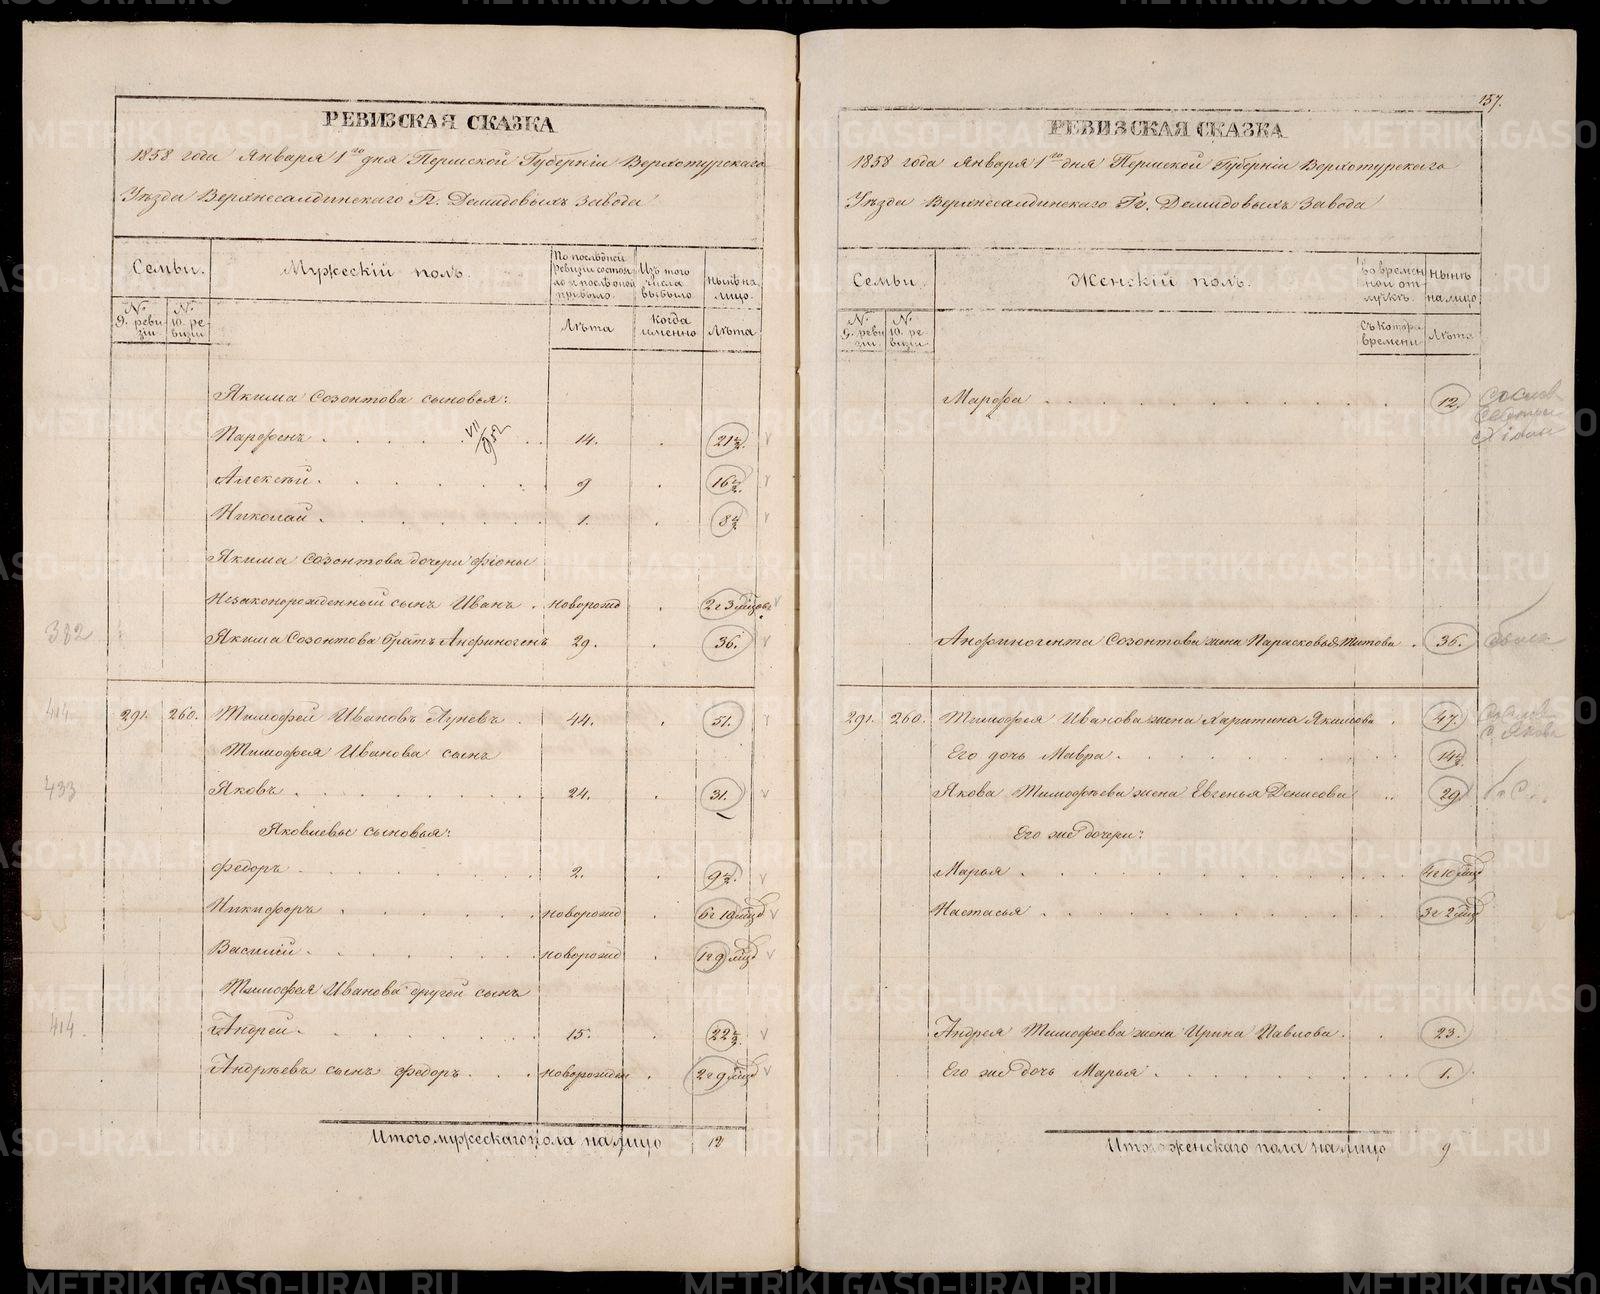 РЕВИЗСКАЯ СКАЗКА
1858 года Января 1го дня Пермской Губерніи Верхотурскаго
Уѣзда Верхнесалдинскаго Гг. Демидовыхъ Завода
Семьи.
Мужескій полъ.
По послѣдней ревизіи состояло и послѣ оной прибыло.
Изъ того числа выбыло
Нынѣ на лицо.
№ 9. ревизіи
№ 10. ревизіи
Лѣта
Когда именно
Лѣта
Якима Созонтова сыновья:
Парфенъ 14. 21½.
Алексѣй 9 16½.
Николай 1. 8½
Якима Созонтова дочери Фіоны
Незаконорожденный сынъ Иванъ новорожд 2 г 3 мѣцовъ
382
Якима Созонтова братъ Анфиногенъ 29. 36.
414
291. 260. Тимофей Ивановъ Луневъ 44. 51.
Тимофея Иванова сынъ
433
Яковъ 24. 31.
Яковлевы сыновья:
Федоръ 2. 9½.
Никифоръ новорожд 6 г 10 мѣцъ
Василій новорожд 1 г 9 мѣцъ
Тимофея Иванова другой сынъ
414.
Андрей 15. 22½.
Андреевъ сынъ Федоръ новорожден 2 г 9 мѣцъ
Итого мужескаго пола на лицо 12
157.
РЕВИЗСКАЯ СКАЗКА
1858 года Января 1го дня Пермской Губерніи Верхотурскаго
Уѣзда Верхнесалдинскаго Гг. Демидовыхъ Завода
Семьи
Женскій полъ.
Во временной отлучкѣ.
Нынѣ на лицо
№ 9. ревизіи.
№ 10. ревизіи.
Съ котора времени
Лѣта
Марфа 12.
Анфиногента Созонтова жена Парасковья Титова 36.
291. 260. Тимофея Иванова жена Харитина Якимова 47.
Его дочь Мавра 14½.
Якова Тимофѣева жена Евгенья Денисова 29
Его же дочери:
Марья 4 г 10 мѣцъ
Настасья 3 г 2 мѣцъ
Андрея Тимофеева жена Ирина Павлова 23.
Его же дочь Марья 1.
Итого женскаго пола на лицо 9
METRIKI.GASO-URAL.RU